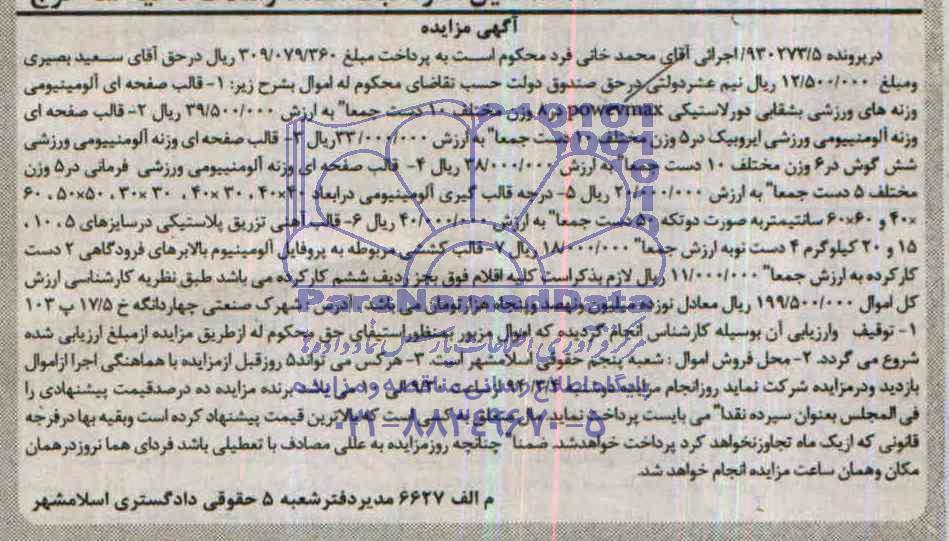 آگهی مزایده
درپرونده ۹۳۰۲۷۳/۵/اجرائی آقای محمد خانی فرد محکوم است به پرداخت مبلغ ۳۰۹/۰۷۹/۳۶۰ ریال درحق آقای سعید بصیری
ومبلغ ۱۲/۵۰۰/۰۰۰ ریال نیم عشردولتی درحق صندوق دولت حسب تقاضای محکوم له اموال بشرح زیر: ۱- قالب صفحه ای آلومینیومی
وزنه های ورزشی بشقابی دورلاستیکی powevmax در۸ وزن مختلف ۱۰ دست جمعا" به ارزش ۳۹/۵۰۰/۰۰۰ ریال ۲- قالب صفحه ای
وزنه آلومنییومی ورزشی ایروبیک در۵ وزن مختلف ۱۰ دست جمعا" به ارزش ۳۳/۰۰۰/۰۰۰ریال ۳- قالب صفحه ای وزنه آلومنییومی ورزشی
شش گوش در۶ وزن مختلف ۱۰ دست جمعا" به ارزش ۳۸/۰۰۰/۰۰۰ ریال ۴- قالب صفحه ای وزنه آلومنییومی ورزشی فرمانی در۵ وزن
مختلف ۵ دست جمعا" به ارزش ۲۰/۰۰۰/۰۰۰ ریال ۵- درجه قالب گیری آلومینیومی درابعاد ۴۰×۴۰ ، ۳۰×۴۰ ، ۳۰×۳۰ ، ۵۰×۵۰ ، ۶۰
×۴۰ و ۶۰×۶۰ سانتیمتربه صورت دوتکه ۵۰ دست جمعا" به ارزش ۴۰/۰۰۰/۰۰۰ ریال ۶- قالب آهنی تزریق پلاستیکی درسایزهای ۵ ، ۱۰ ،
۱۵ و ۲۰ کیلوگرم ۴ دست نوبه ارزش جمعا" ۱۸/۰۰۰/۰۰۰ ریال ۷- قالب کششی مربوطه به پروفایل آلومینیوم بالابرهای فرودگاهی ۲ دست
کارکرده به ارزش جمعا" ۱۱/۰۰۰/۰۰۰ ریال لازم بذکراست کلیه اقلام فوق بجز ردیف ششم کارکرده می باشد طبق نظریه کارشناسی ارزش
کل اموال ۱۹۹/۵۰۰/۰۰۰ ریال معادل نوزده میلیون ونهصد وپنجاه هزارتومان می باشد. آدرس شهرک صنعتی چهاردانگه خ ۱۷/۵ پ ۱۰۳
۱- توقیف وارزیابی آن بوسیله کارشناس انجام گردیده که اموال مزبور به منظوراستیفای حق محکوم له ازطریق مزایده ازمبلغ ارزیابی شده
شروع می گردد. ۲- محل فروش اموال : شعبه پنجم حقوقی اسلامشهر است. ۳- هرکس می تواند۵ روزقبل ازمزایده با هماهنگی اجرا ازاموال
بازدید ودرمزایده شرکت نماید روزانجام مزایده دوشنبه ۹۴/۳/۴ ازساعت می باشد برنده مزایده ده درصدقیمت پیشنهادی را
فی المجلس بعنوان سپرده نقدا" می بایست پرداخت نماید است که بالاترین قیمت پیشنهاد کرده است وبقیه بها درفرجه
قانونی که ازیک ماه تجاوزنخواهد کرد پرداخت خواهدشد. ضمنا" چنانچه روزمزایده به عللی مصادف با تعطیلی باشد فردای هما نروزدرهمان
مکان وهمان ساعت مزایده انجام خواهد شد.
م الف ۶۶۲۷ مدیردفترشعبه ۵ حقوقی دادگستری اسلامشهر
ParsNamadData
پایگاه اطلاع رسانی مناقصه ومزایده
۰۲۱-۸۸۳۴۹۶۷۰-۵